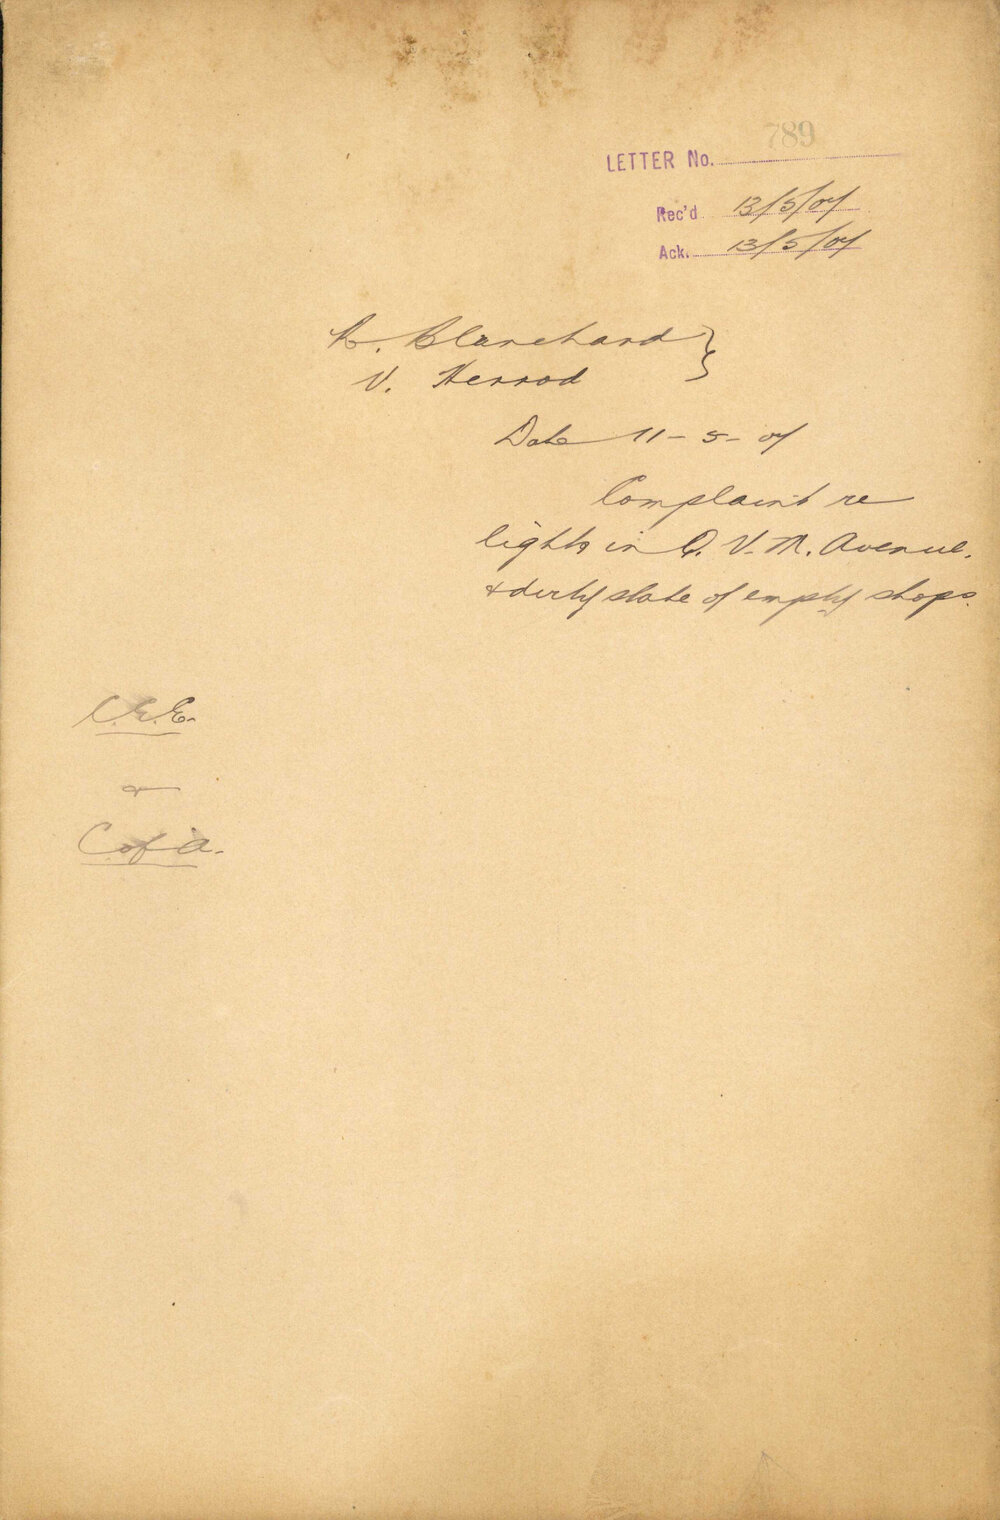 789
LETTER No.
Rec'd 13/5/07
Ack. 13/5/07
Blanchard }
V. Herrod
Date 11-5-07
Complaint re
lights in Q. V. M. Avenue.
& dirty state of empty shops.
C.E.E.
&
C of A.